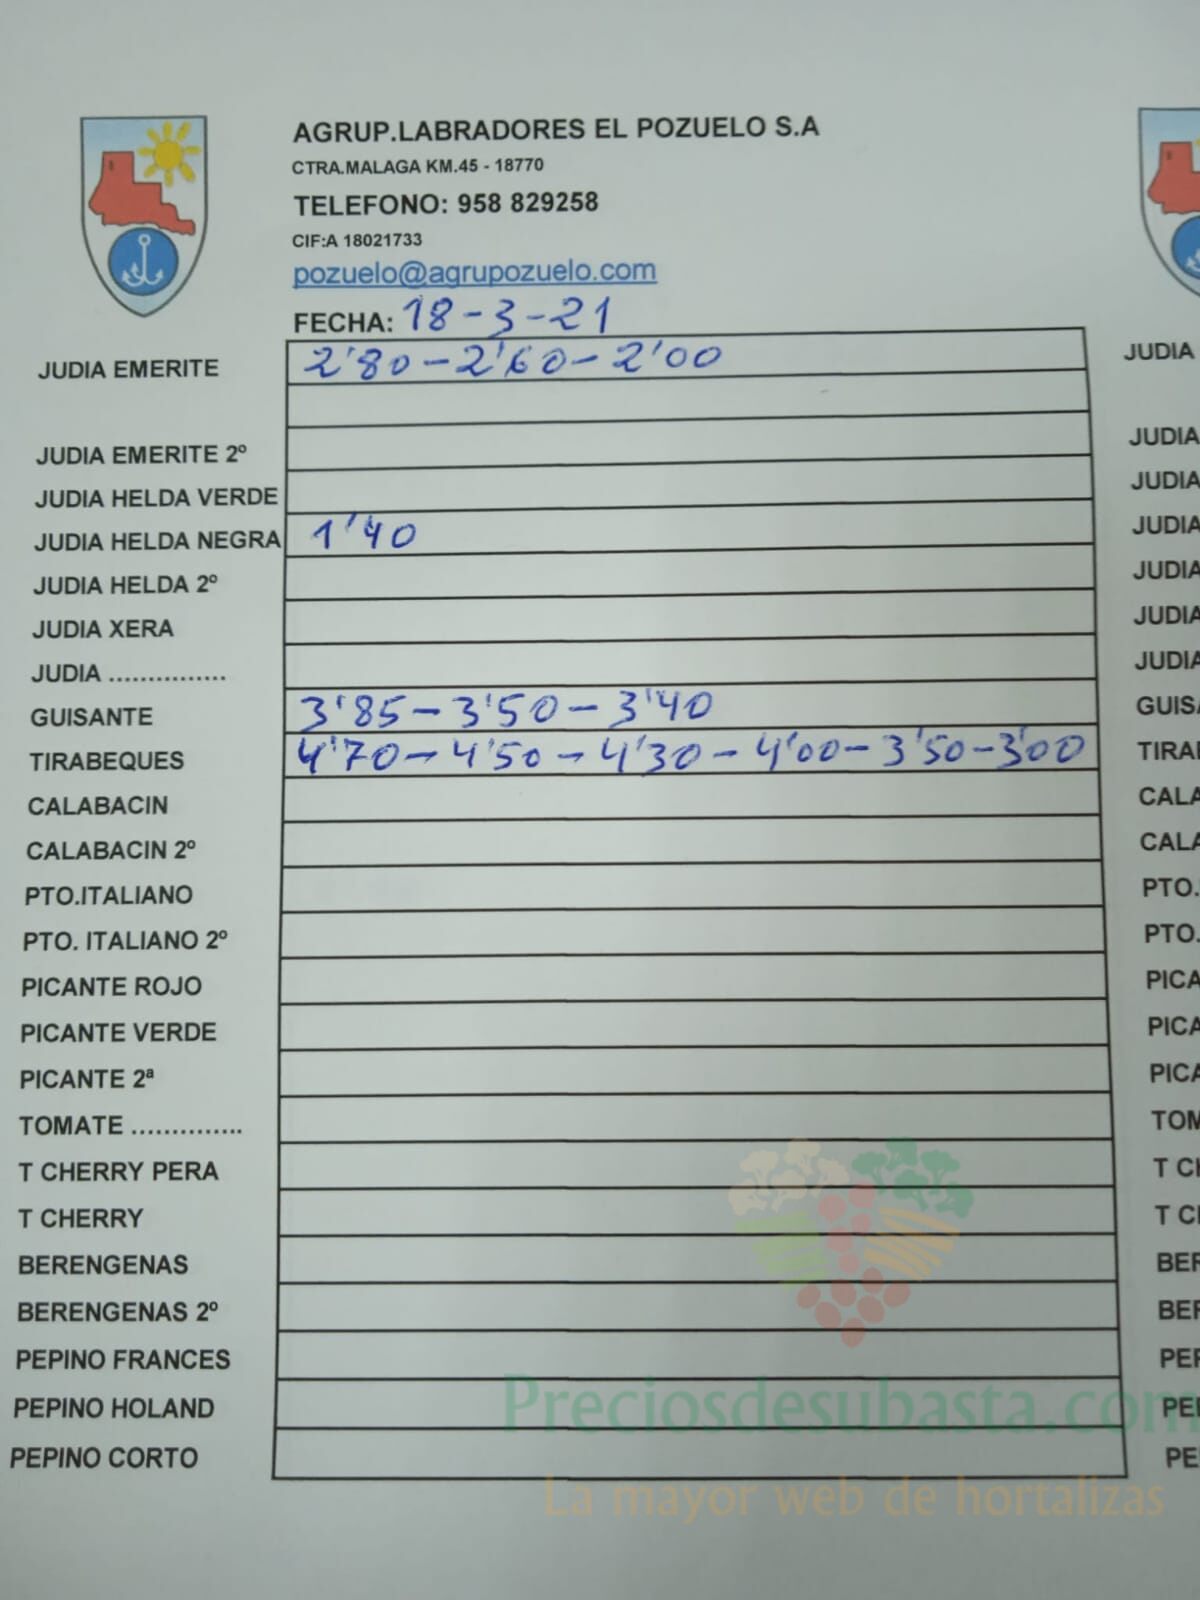 AGRUP.LABRADORES EL POZUELO S.A
CTRA.MALAGA KM.45 - 18770
TELEFONO: 958 829258
CIF:A 18021733
pozuelo@agrupozuelo.com
FECHA: 18-3-21
JUDIA EMERITE 2'80-2'60-2'00 JUDIA
JUDIA EMERITE 2º JUDIA
JUDIA HELDA VERDE JUDIA
JUDIA HELDA NEGRA 1'40 JUDIA
JUDIA HELDA 2º JUDIA
JUDIA XERA JUDIA
JUDIA ............... JUDIA
GUISANTE 3'85-3'50-3'40 GUISA
TIRABEQUES 4'70-4'50-4'30-4'00-3'50-3'00 TIRAB
CALABACIN CALA
CALABACIN 2º CALA
PTO.ITALIANO PTO.
PTO. ITALIANO 2º PTO.
PICANTE ROJO PICA
PICANTE VERDE PICA
PICANTE 2ª PICA
TOMATE .............. TOM
T CHERRY PERA T CH
T CHERRY T CH
BERENGENAS BER
BERENGENAS 2º BER
PEPINO FRANCES PEP
PEPINO HOLAND PEP
PEPINO CORTO PE
Preciosdesubasta.com
La mayor web de hortalizas